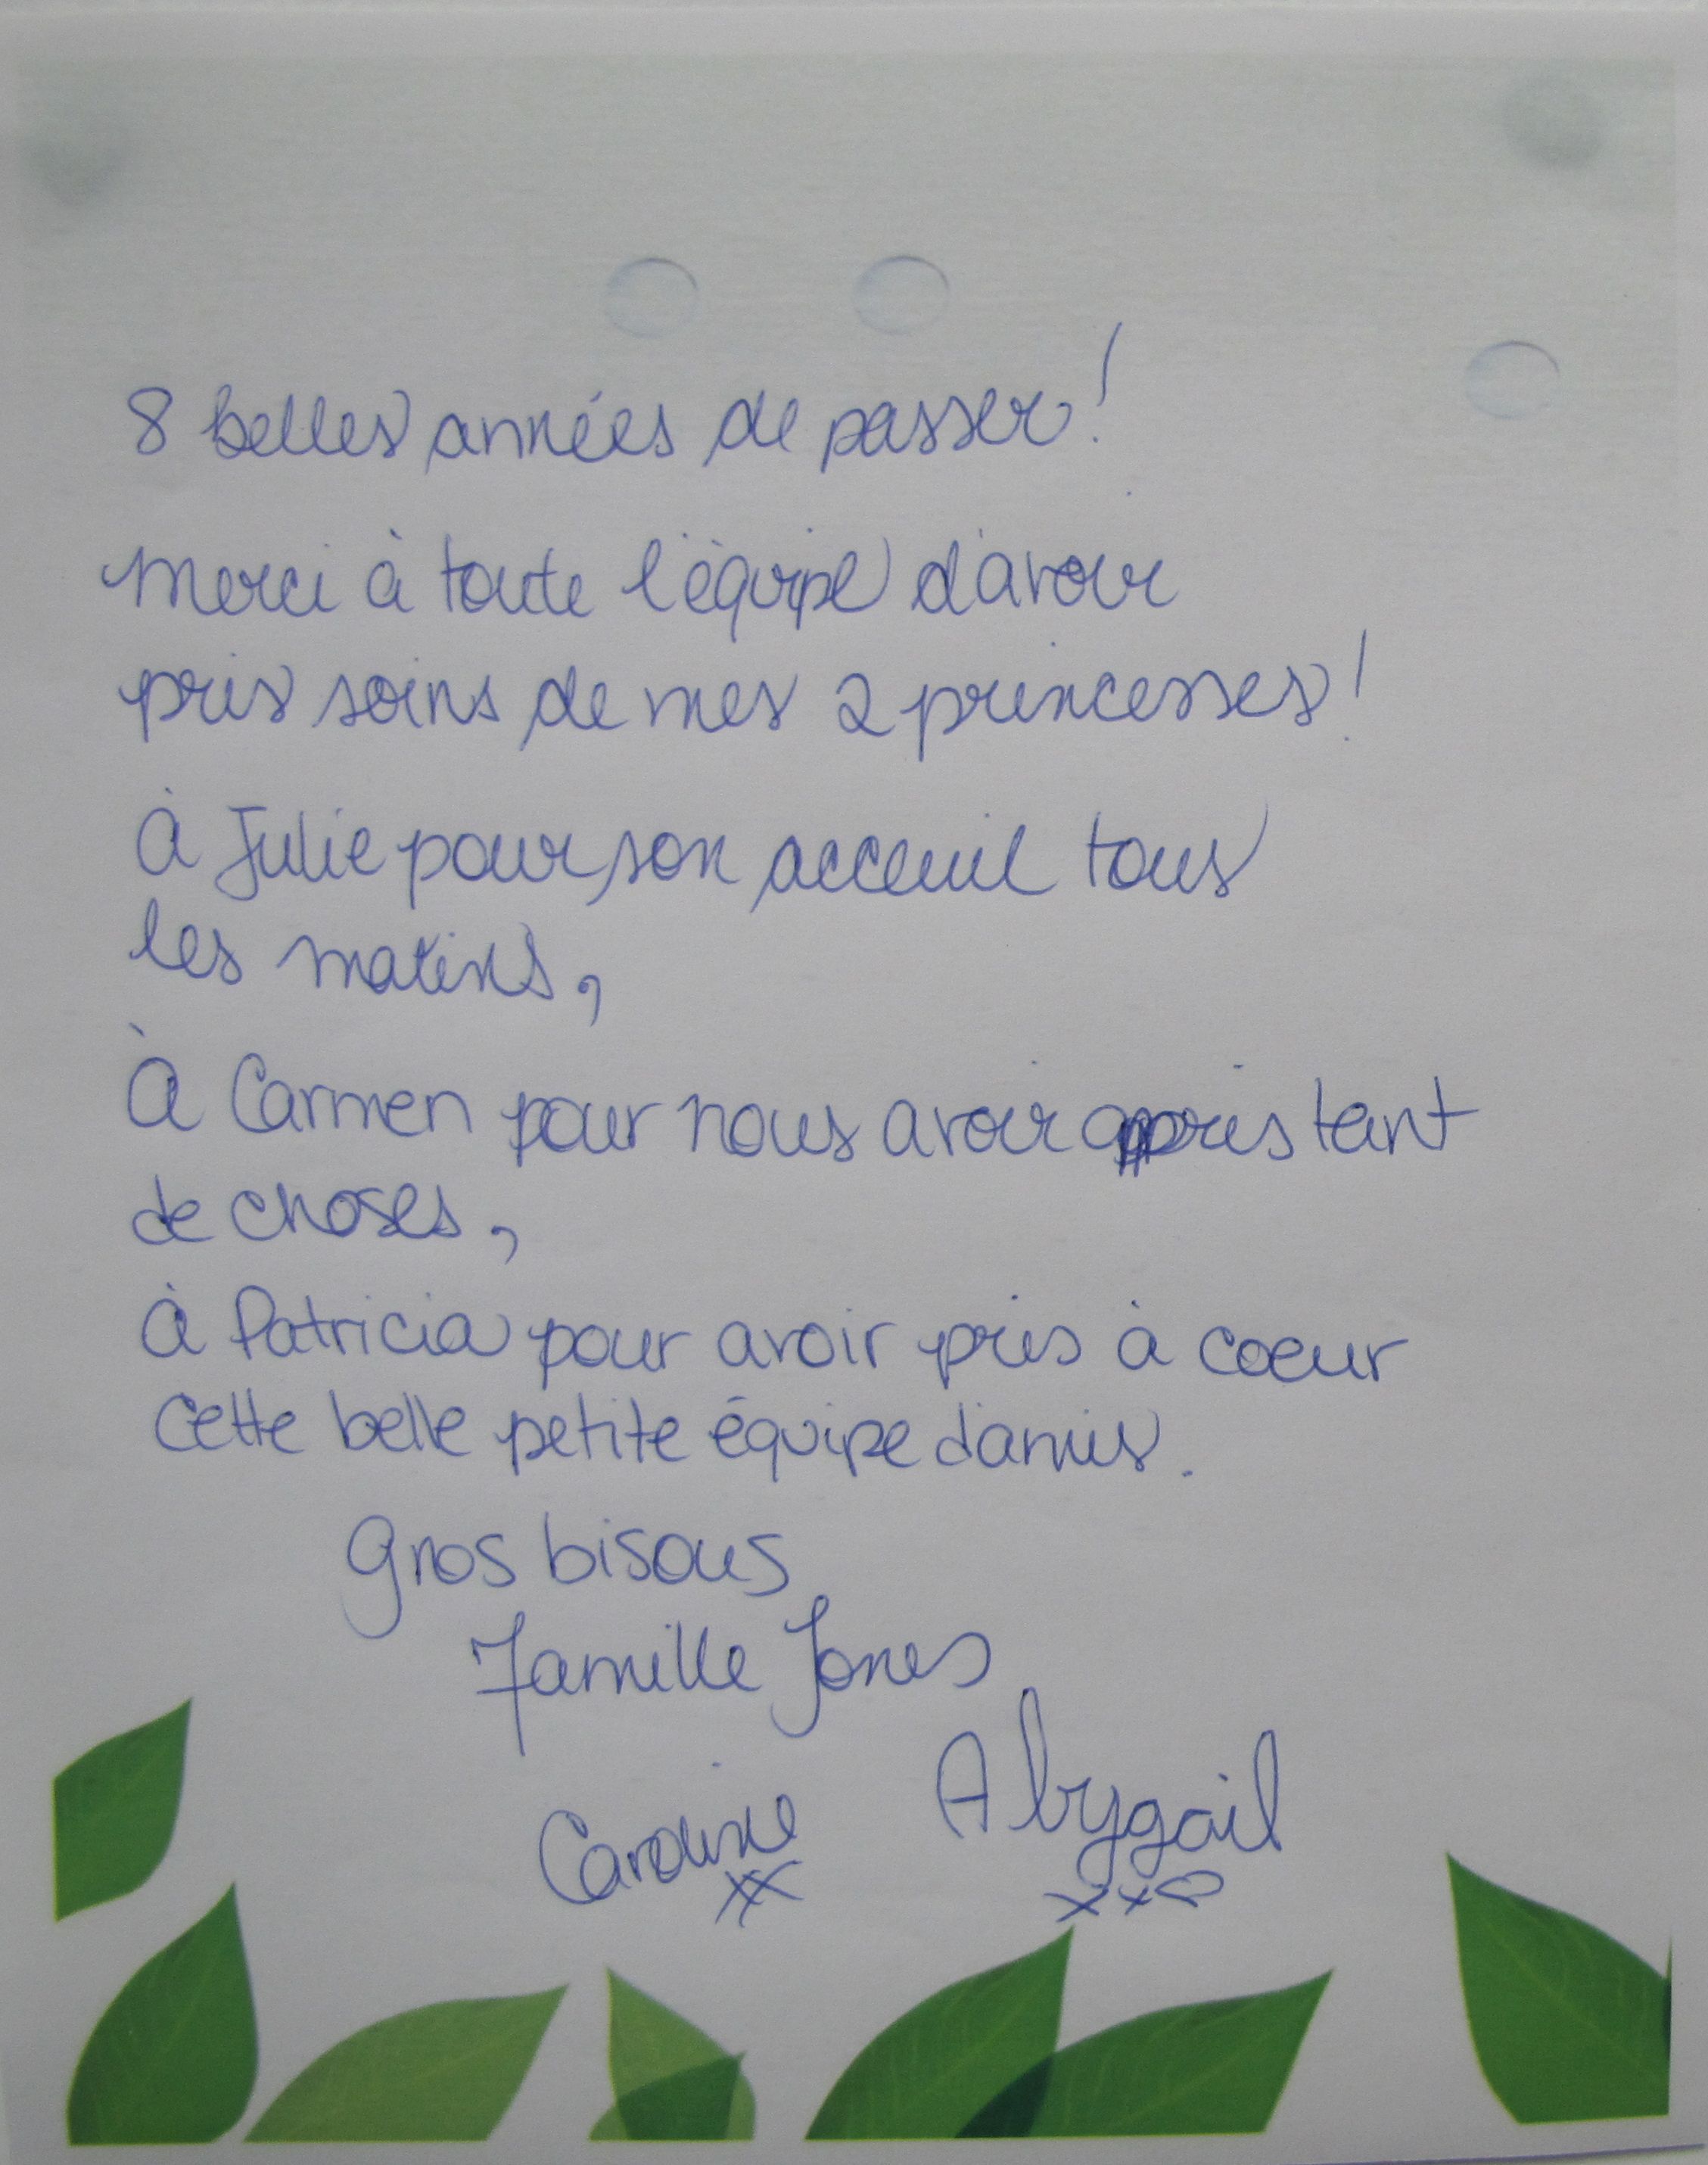 8 belles années de passer!
Merci à toute l'équipe d'avoir
pris soins de mes 2 princesses!
À Julie pour son acceuil tous
les matins,
À Carmen pour nous avoir appris tant
de choses,
À Patricia pour avoir pris à coeur
cette belle petite équipe d'amis.
Gros bisous
Famille Jones
Caroline Abygail
xx xx♡